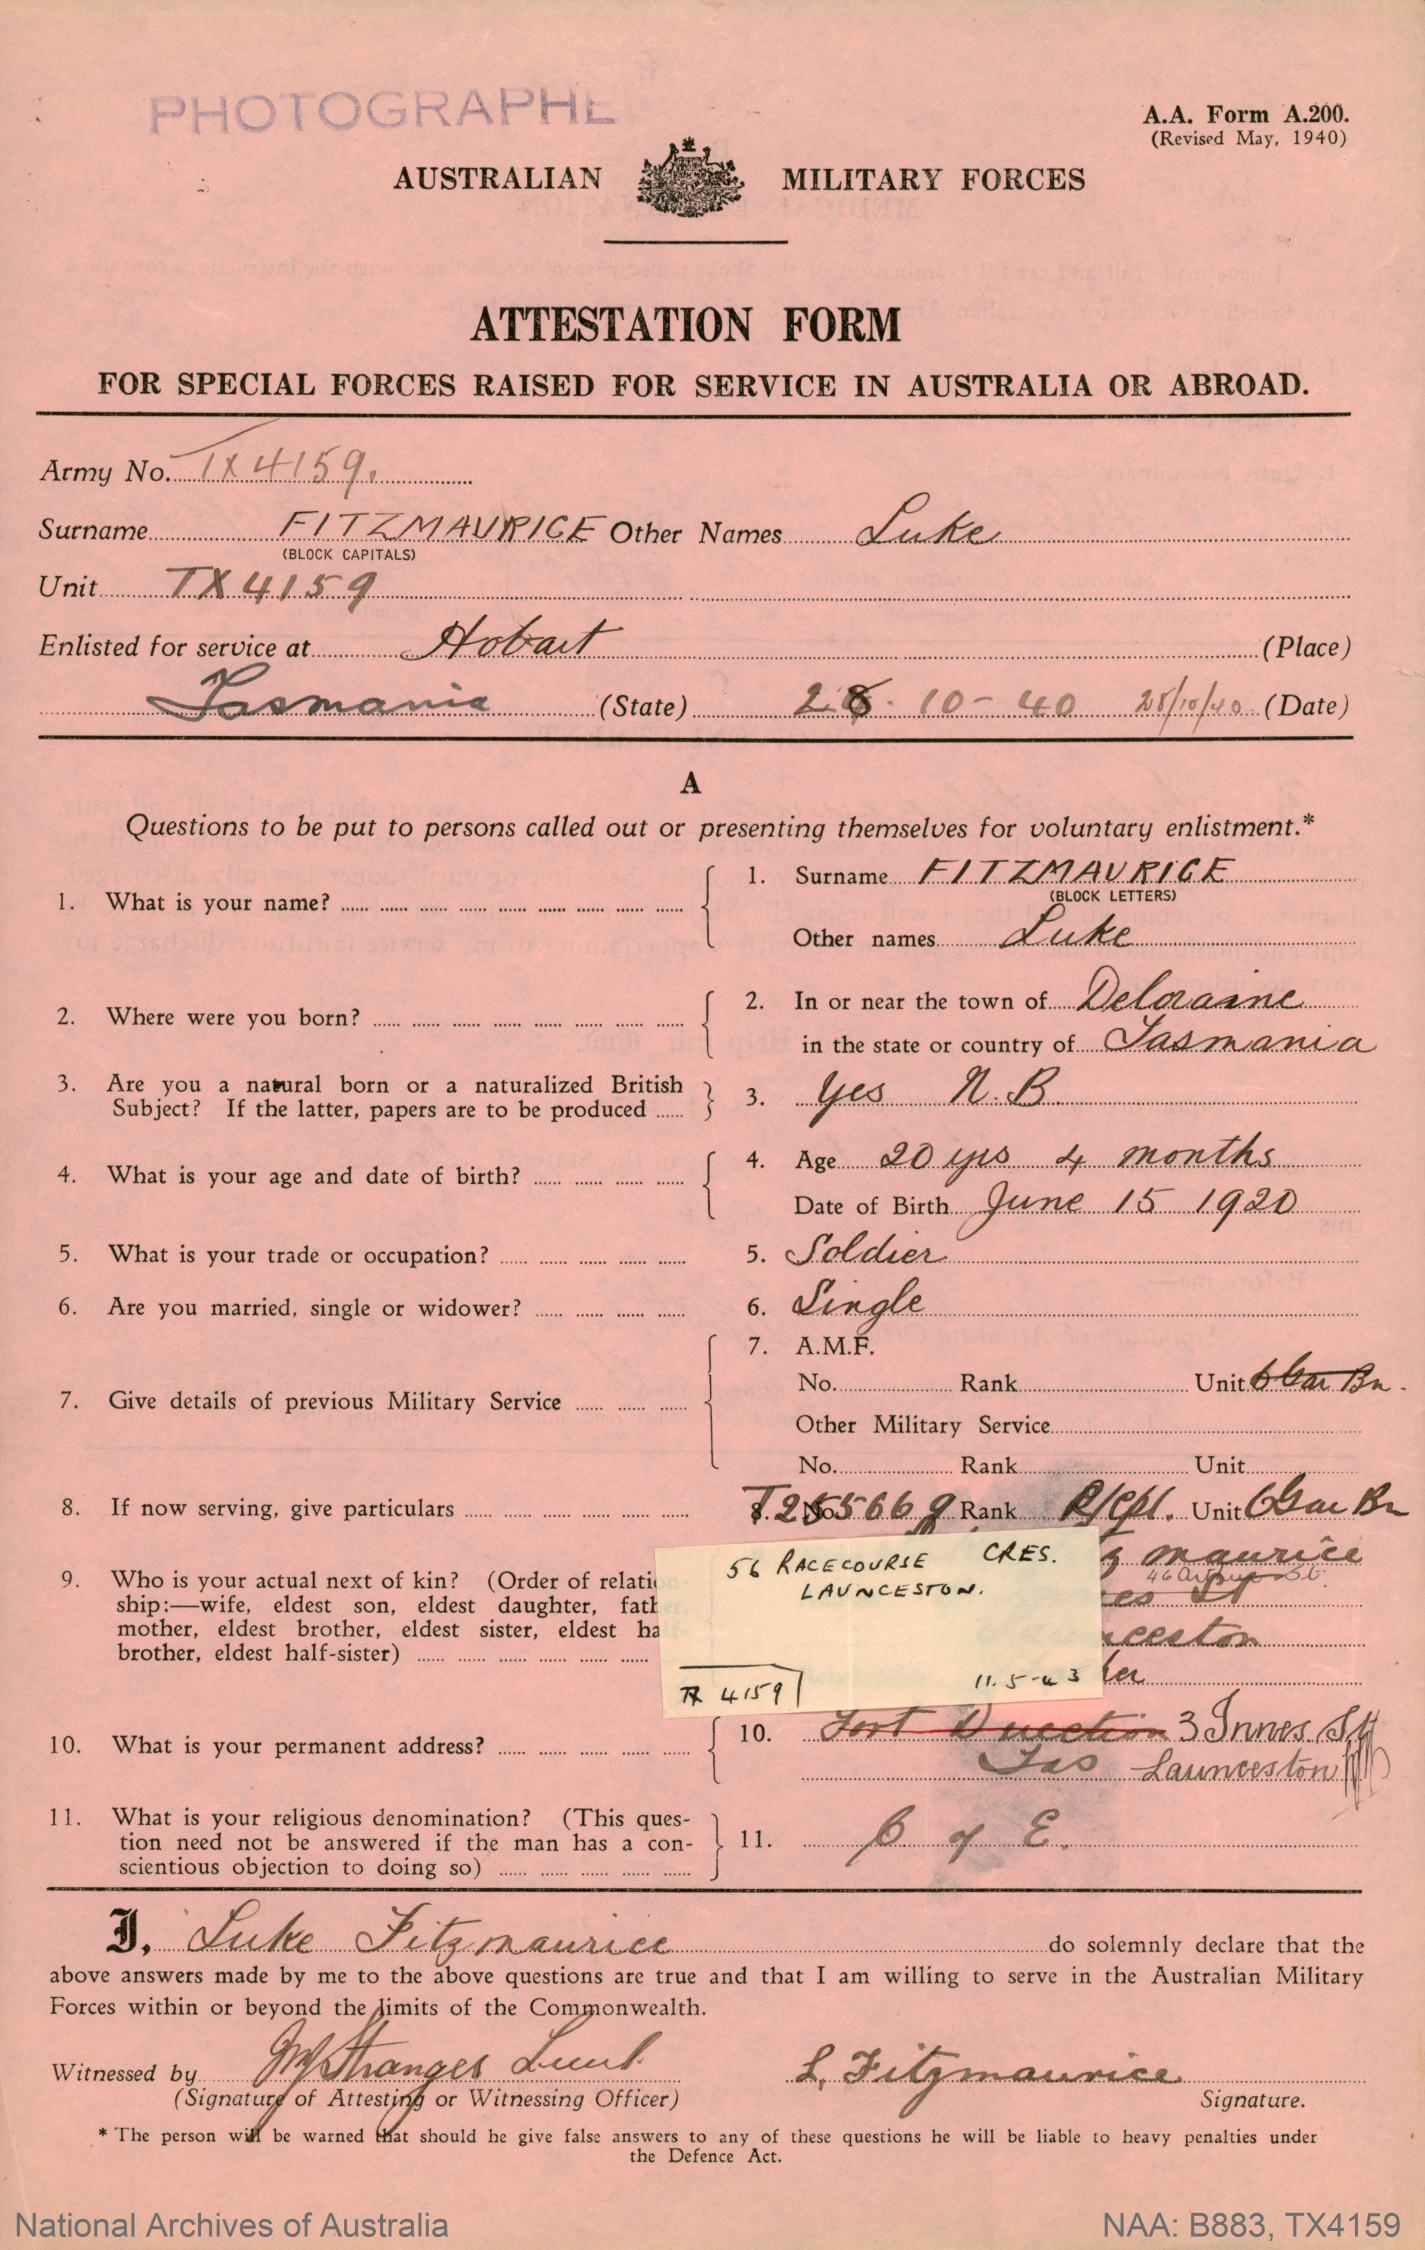 PHOTOGRAPHE
A.A. Form A.200.
(Revised May, 1940)
AUSTRALIAN MILITARY FORCES
ATTESTATION FORM
FOR SPECIAL FORCES RAISED FOR SERVICE IN AUSTRALIA OR ABROAD.
Army No. TX4159.
Surname FITZMAURICE Other Names Luke
(BLOCK CAPITALS)
Unit TX4159
Enlisted for service at Hobart (Place)
Tasmania (State) 28. 10 - 40 28/10/40 (Date)
A
Questions to be put to persons called out or presenting themselves for voluntary enlistment.*
1. What is your name? 1. Surname FITZMAURICE
(BLOCK LETTERS)
Other names Luke
2. Where were you born? 2. In or near the town of Deloraine
in the state or country of Tasmania
3. Are you a natural born or a naturalized British
Subject? If the latter, papers are to be produced 3. Yes N.B
4. What is your age and date of birth? 4. Age 20 yrs 4 months
Date of Birth June 15 1920
5. What is your trade or occupation? 5. Soldier
6. Are you married, single or widower? 6. Single
7. Give details of previous Military Service 7. A.M.F.
No. Rank Unit 6 Gar Bn.
Other Military Service
No. Rank Unit
8. If now serving, give particulars 8. No. Rank Unit 6 Gar Bn
9. Who is your actual next of kin? (Order of relation-
ship:—wife, eldest son, eldest daughter, fat
mother, eldest brother, eldest sister, eldest ha
brother, eldest half-sister)
maurice
St
nceston
her
56 RACECOURSE CRES.
LAUNCESTON.
TX 4159
11.5-43
10. What is your permanent address? 10. Fort Direction 3 Innes St
Tas Launceston
11. What is your religious denomination? (This ques-
tion need not be answered if the man has a con-
scientious objection to doing so) 11. C of E.
I, Luke Fitzmaurice do solemnly declare that the
above answers made by me to the above questions are true and that I am willing to serve in the Australian Military
Forces within or beyond the limits of the Commonwealth.
Witnessed by L. Fitzmaurice
(Signature of Attesting or Witnessing Officer) Signature.
* The person will be warned that should he give false answers to any of these questions he will be liable to heavy penalties under
the Defence Act.
National Archives of Australia NAA: B883, TX4159